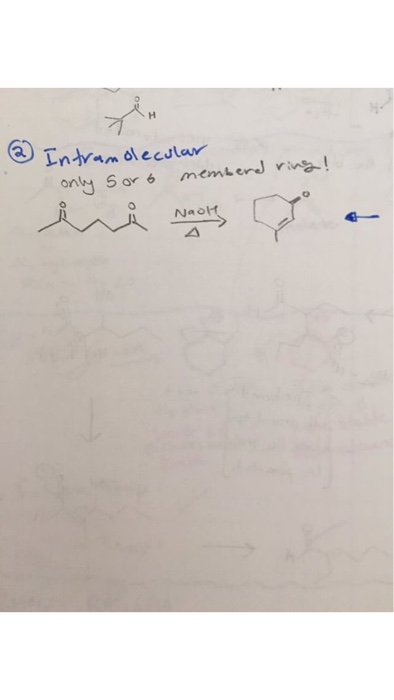 O
H
② Intramolecular
only 5 or 6 memberd ring!
O O NaOH O
Δ